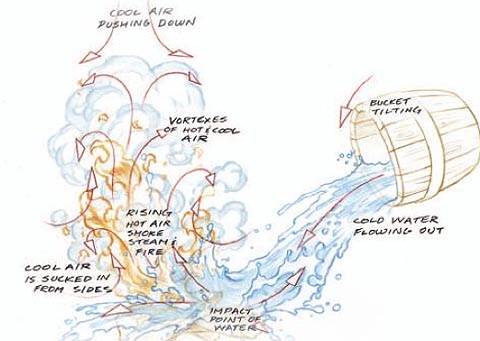 COOL AIR
PUSHING DOWN
VORTEXES
OF HOT & COOL
AIR
BUCKET
TILTING
RISING
HOT AIR
SMOKE
STEAM &
FIRE
COLD WATER
FLOWING OUT
COOL AIR
IS SUCKED IN
FROM SIDES
IMPACT
POINT OF
WATER